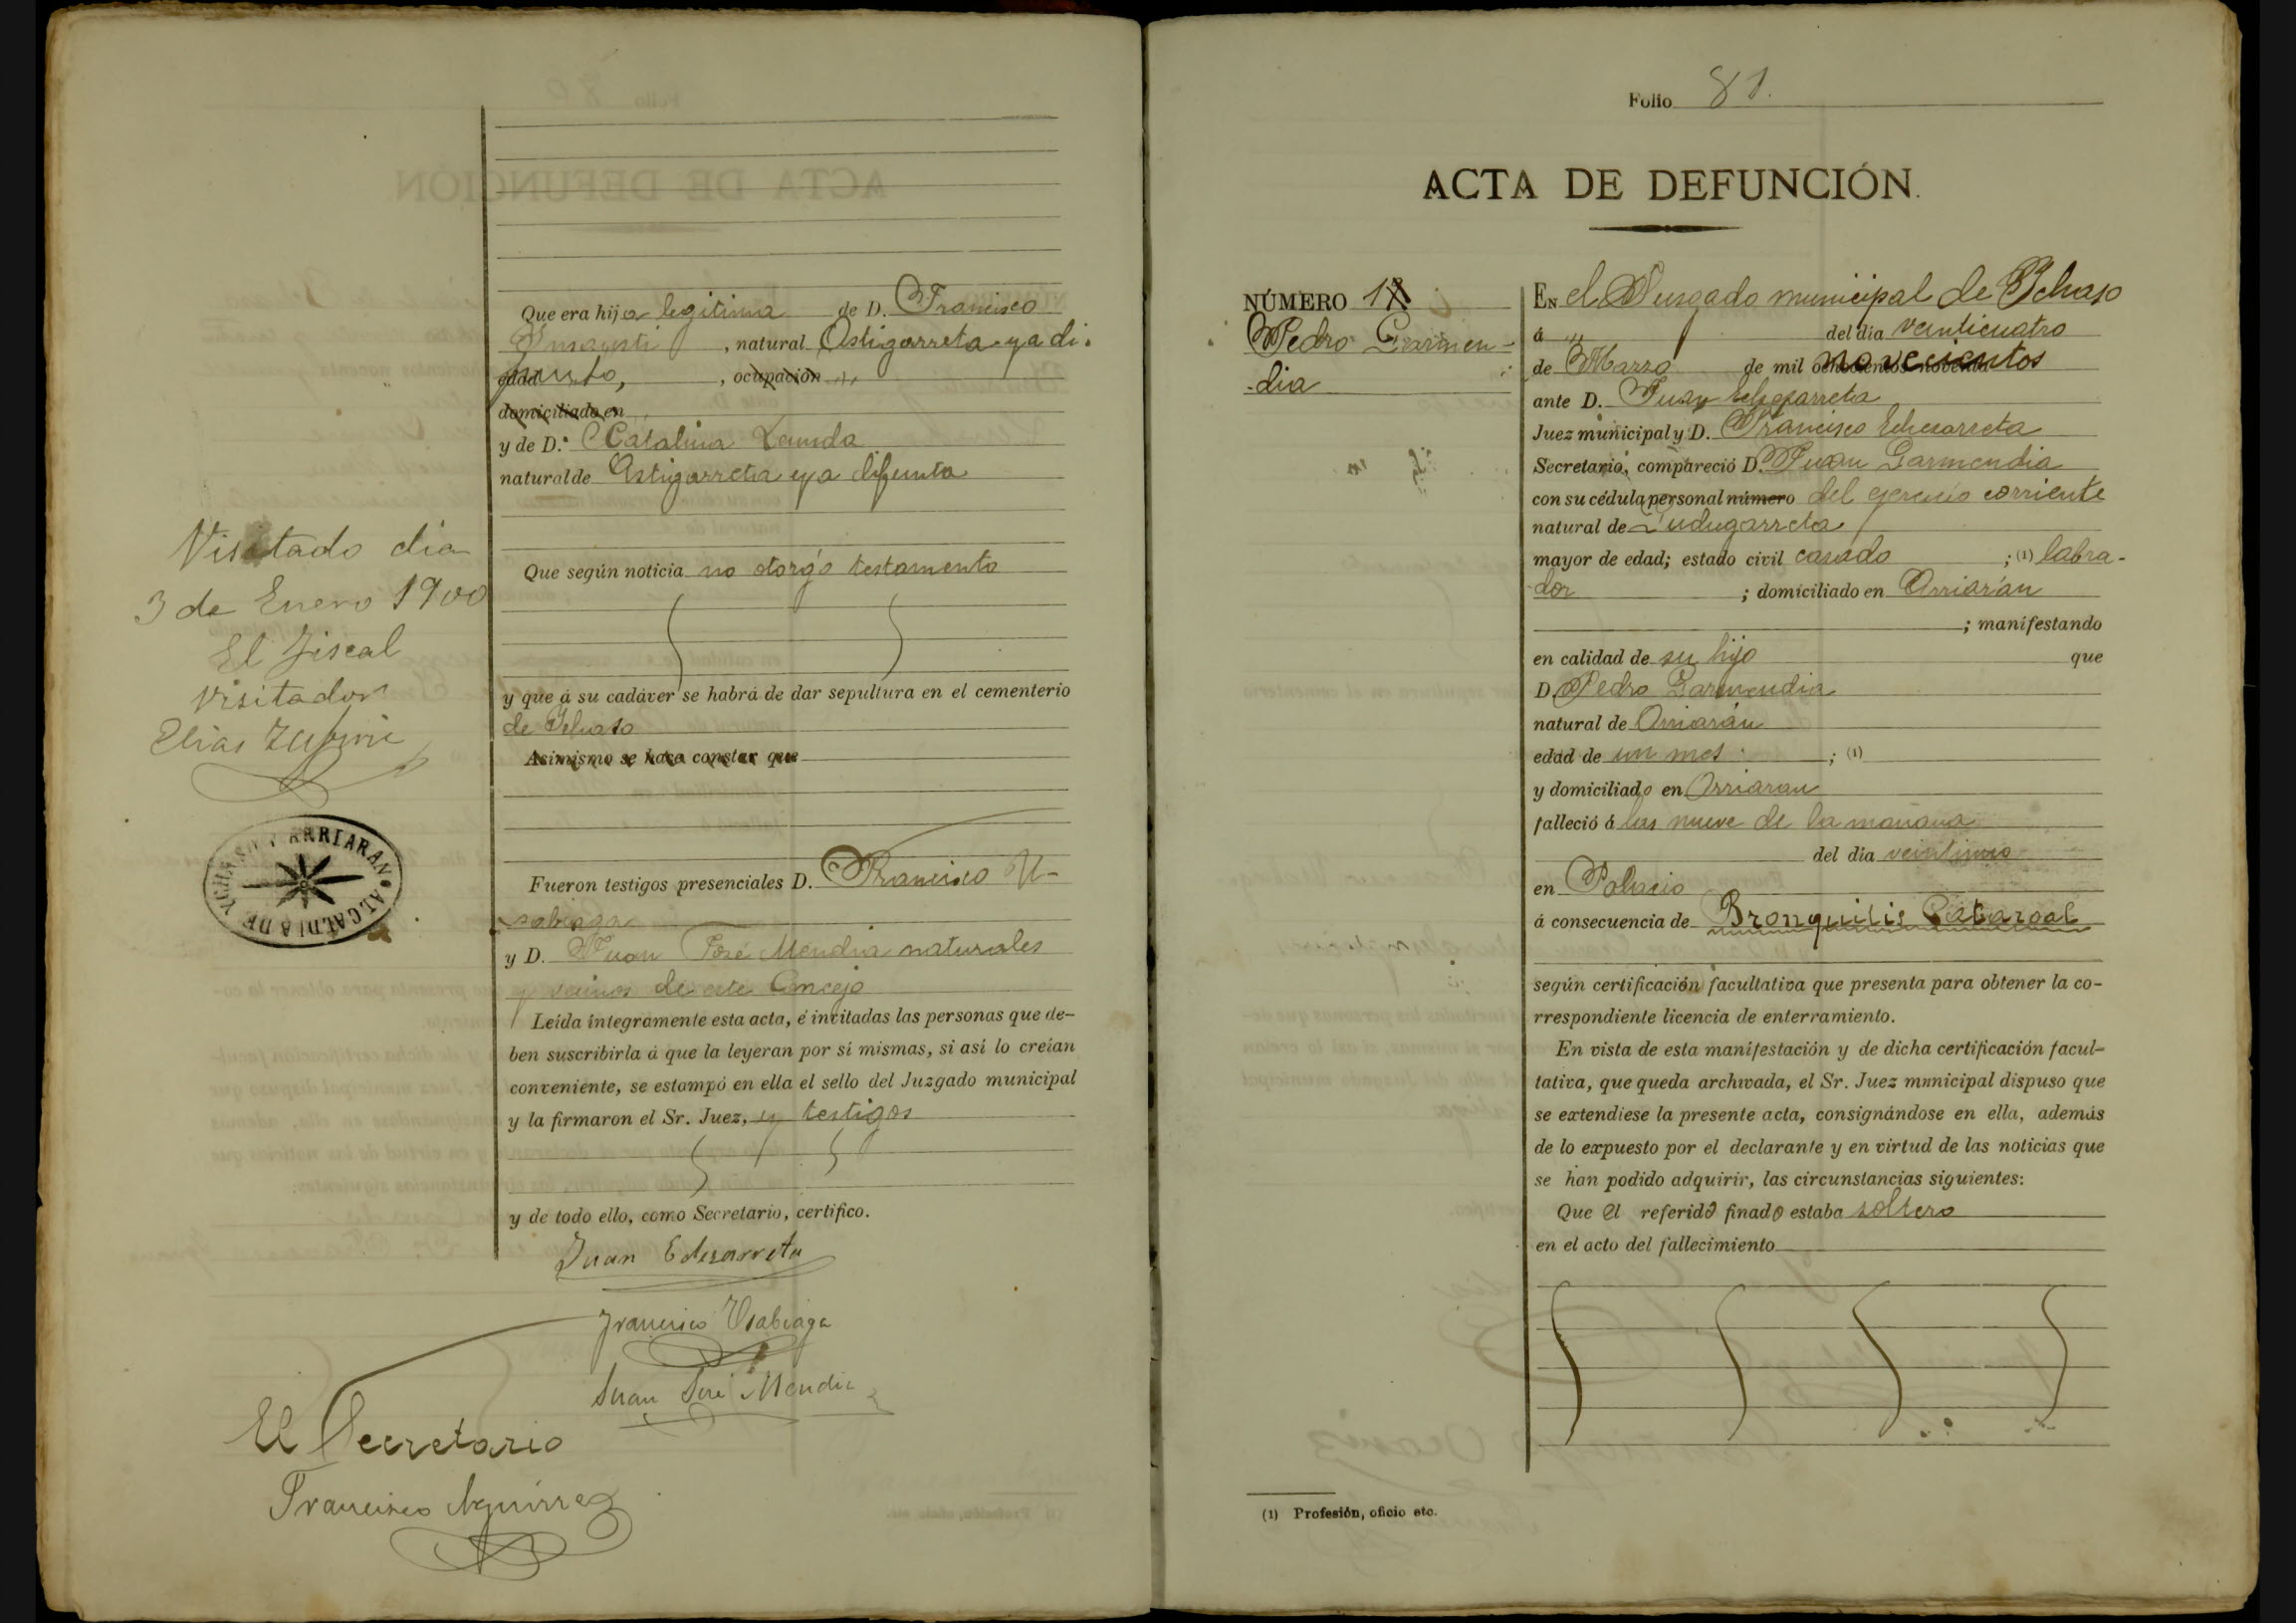 Que era hija legitima de D. Francisco
, natural Astigarreta ya di-
edad funto, , ocupación "
domiciliado en
y de D.ª Catalina Landa
natural de Astigarreta ya difunta
Visitado dia
3 de Enero 1900
El Fiscal
visitador
Elias
ALCALDIA DE YCHASO Y ARRIARAN
Que según noticia no otorgó testamento
y que á su cadáver se habrá de dar sepultura en el cementerio
de Ichaso
Asimismo se hace constar que
Fueron testigos presenciales D. Francisco U-
sabiaga
y D. Juan José Mendia naturales
y vecinos de este Concejo
Leída íntegramente esta acta, é invitadas las personas que de-
ben suscribirla á que la leyeran por sí mismas, si así lo creían
conveniente, se estampó en ella el sello del Juzgado municipal
y la firmaron el Sr. Juez, y testigos
y de todo ello, como Secretario, certifico.
Juan Echezarreta
Francisco Usabiaga
Juan José Mendia
El Secretario
Francisco Aguirre
Folio 81.
ACTA DE DEFUNCIÓN.
NÚMERO 1
Pedro Garmen-
-dia
EN el Jusgado municipal de Ichaso
á " del día veinticuatro
de Marzo de mil novecientos
ante D. Juan Echezarreta
Juez municipal y D. Francisco Echezarreta
Secretario, compareció D. Juan Garmendia
con su cédula personal número del ejercicio corriente
natural de
mayor de edad; estado civil casado ; (1) labra-
-dor ; domiciliado en Arriarán
; manifestando
en calidad de su hijo que
D. Pedro Garmendia
natural de Arriarán
edad de un mes ; (1)
y domiciliado en Arriaran
falleció á las nueve de la mañana
del día
en Palacio
á consecuencia de Bronquitis Catarral
según certificación facultativa que presenta para obtener la co-
rrespondiente licencia de enterramiento.
En vista de esta manifestación y de dicha certificación facul-
tativa, que queda archivada, el Sr. Juez mnnicipal dispuso que
se extendiese la presente acta, consignándose en ella, además
de lo expuesto por el declarante y en virtud de las noticias que
se han podido adquirir, las circunstancias siguientes:
Que el referido finado estaba soltero
en el acto del fallecimiento
(1) Profesión, oficio etc.